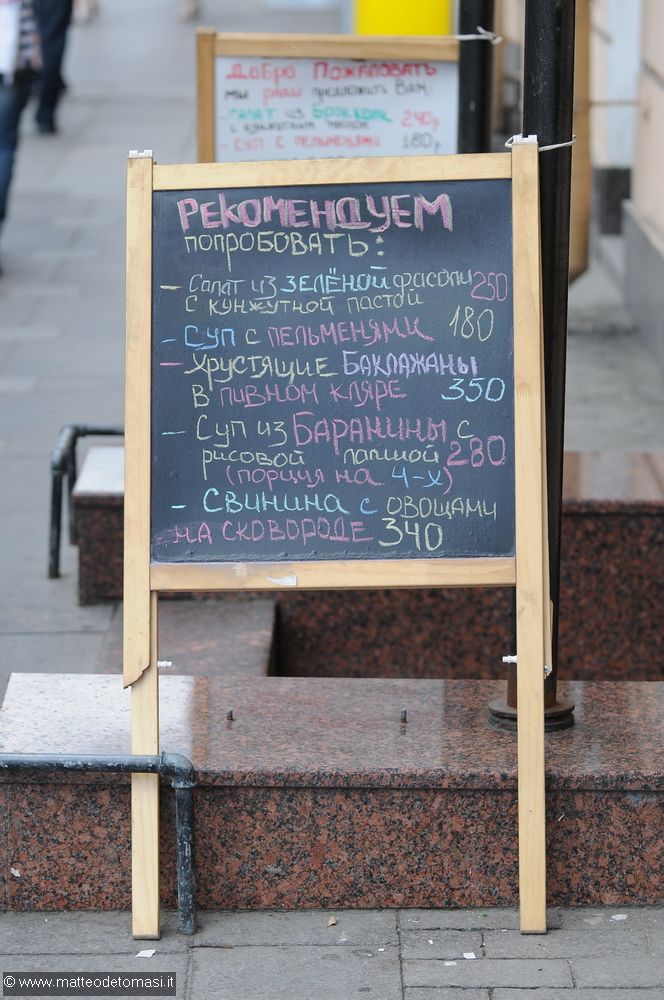 Добро Пожаловать
мы рады предложить Вам:
-салат из брокколи
с кунжутным маслом 240р
-суп с пельменями 180р
Рекомендуем
попробовать:
- Салат из зелёной фасоли 250
с кунжутной пастой
- суп с пельменями 180
- хрустящие баклажаны
в пивном кляре 350
- Суп из баранины с
рисовой лапшой 280
(порция на 4-х)
- Свинина с овощами
на сковороде 340
© www.matteodetomasi.it